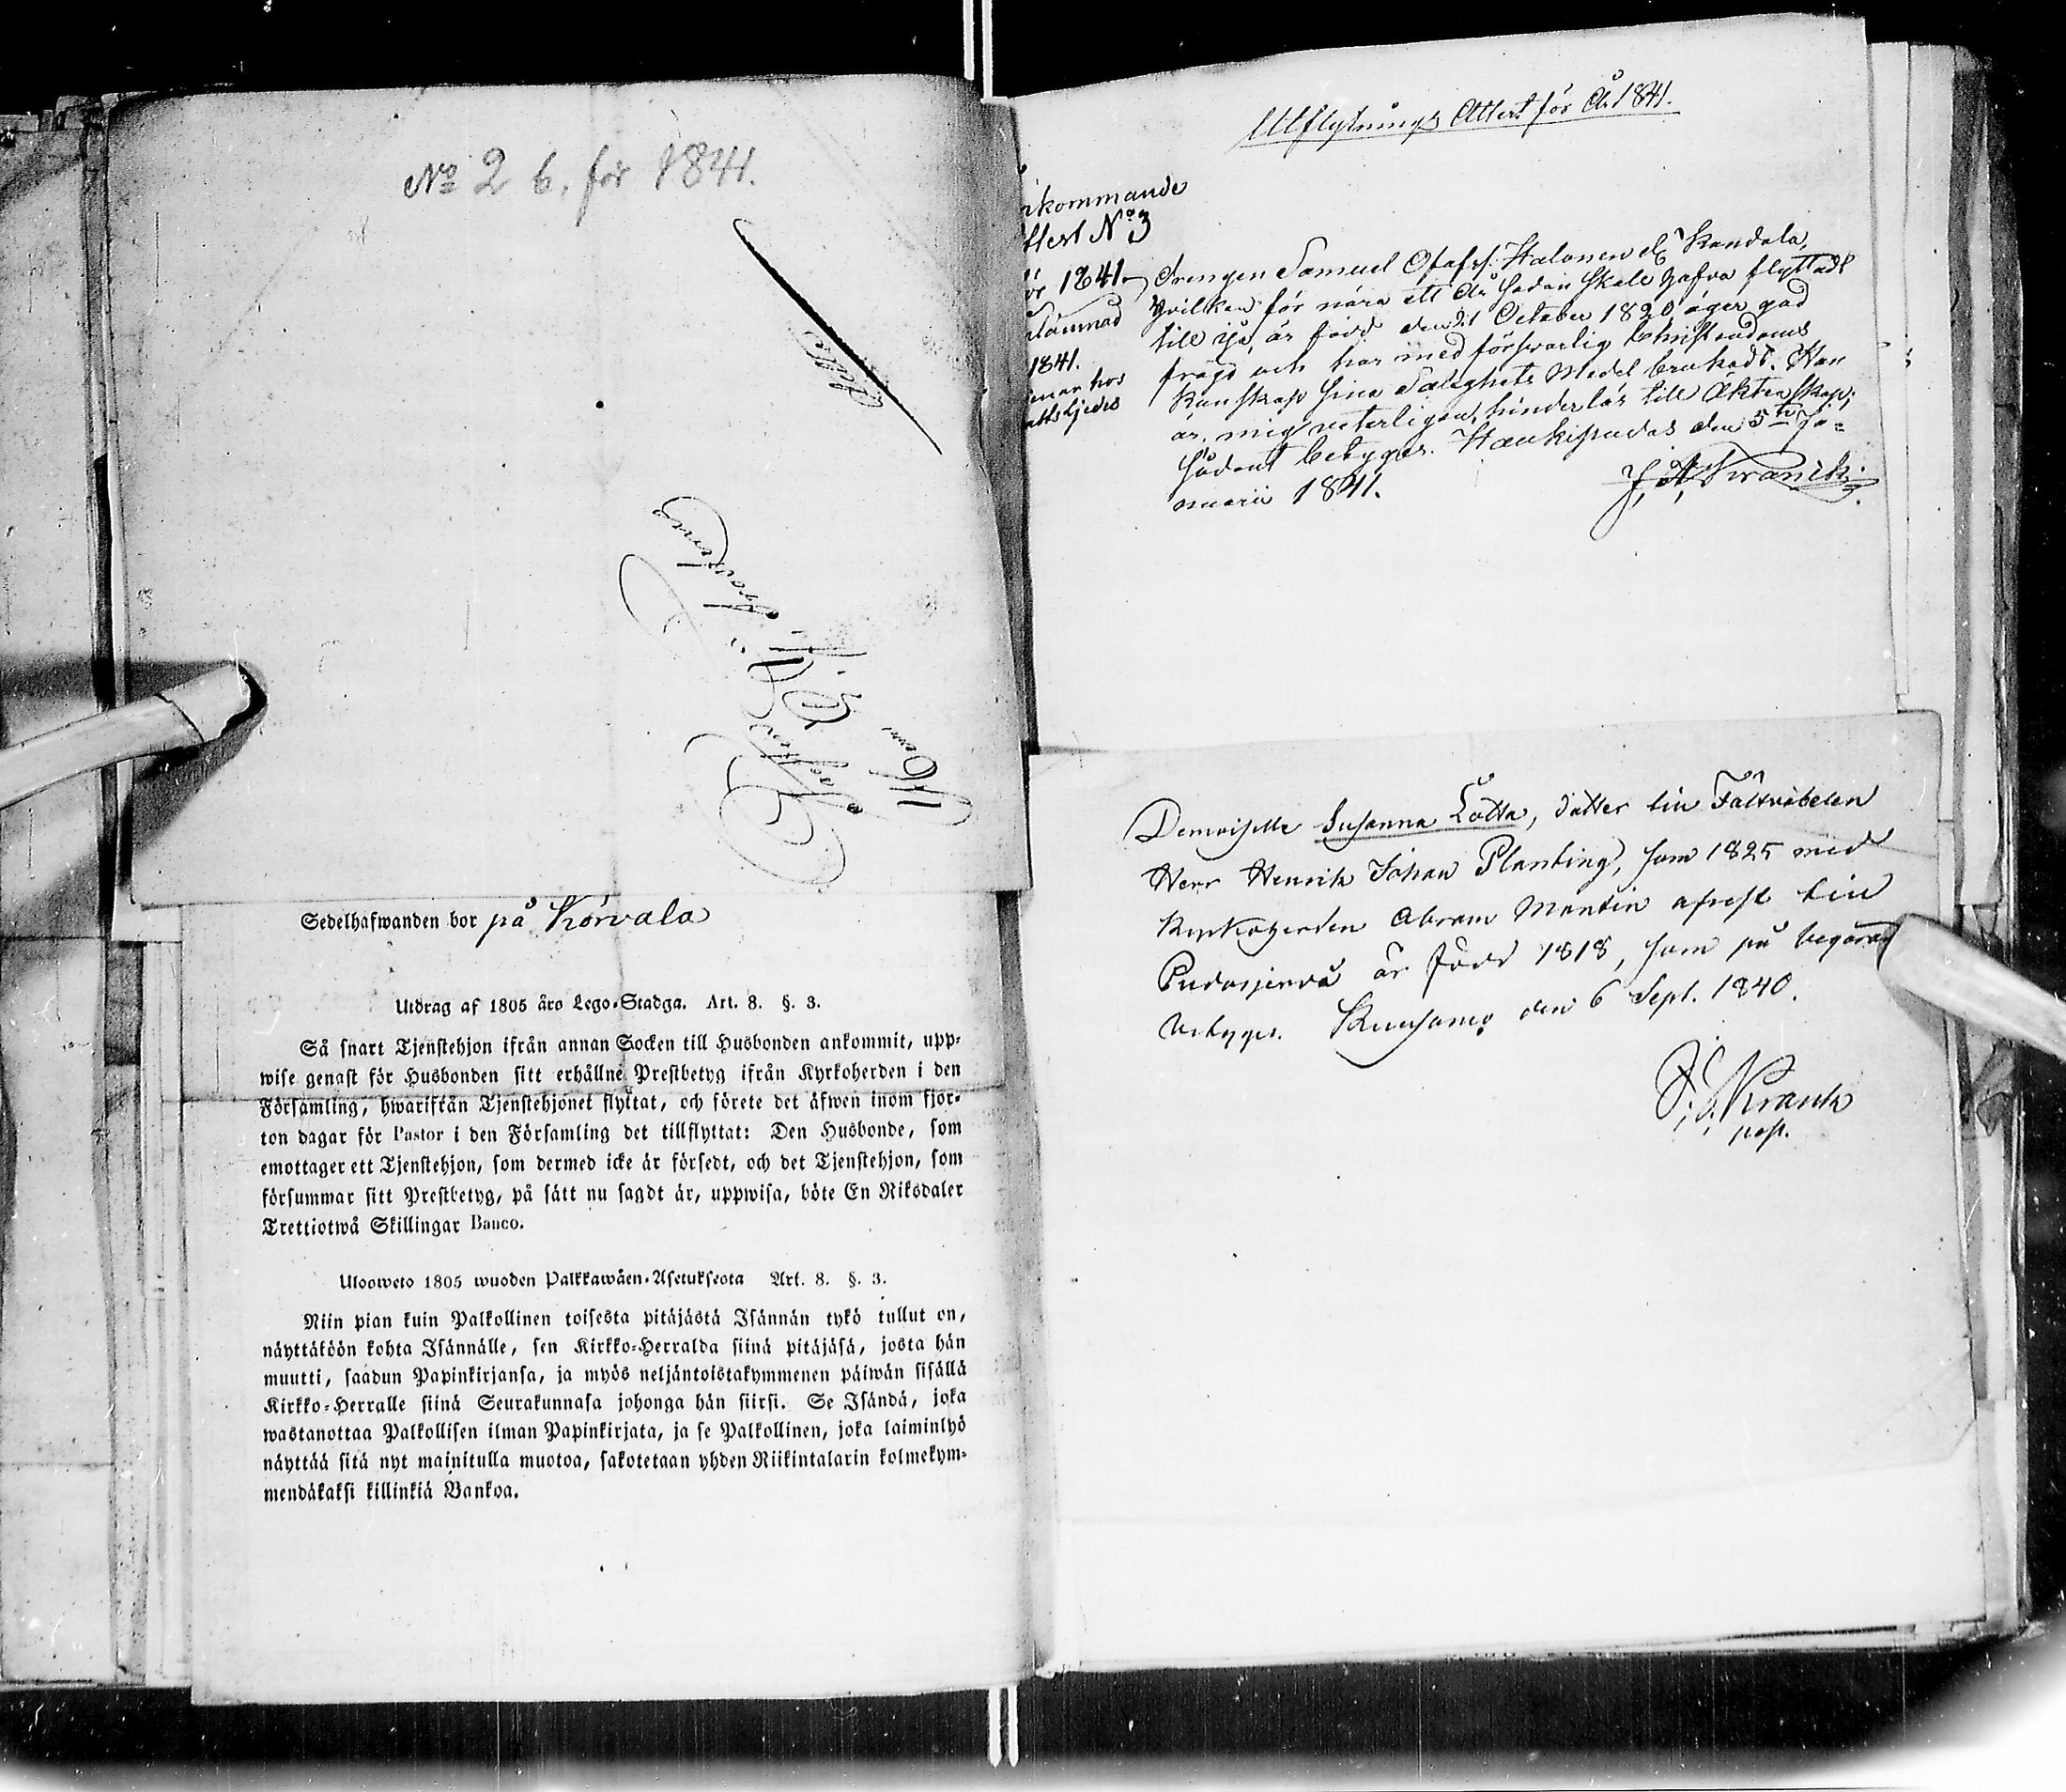 No 2 6. för 1841.
Sedelhafwanden bor på Körvala
Utdrag af 1805 åro Lego-Stadga. Art. 8. §. 3.
Så snart Tjenstehjon ifrån annan Socken till Husbonden ankommit, upp-
wise genast för Husbonden sitt erhållne Prestbetyg ifrån Kyrkoherden i den
Församling, hwarifrån Tjenstehjonet flyttat, och förete det äfwen inom fjor-
ton dagar för Pastor i den Församling det tillflyttat: Den Husbonde, som
emottager ett Tjenstehjon, som dermed icke är försedt, och det Tjenstehjon, som
försummar sitt Prestbetyg, på sätt nu sagdt är, uppwisa, böte En Riksdaler
Trettiotwå Skillingar Banco.
Ulooweto 1805 wuoden Palkkawäen-Asetukseota Art. 8. §. 3.
Niin pian kuin Palkollinen toisesta pitäjästä Isännän tykö tullut on,
näyttäköön kohta Isännälle, sen Kirkko-Herralda siinä pitäjäsä, josta hän
muutti, saadun Papinkirjansa, ja myös neljäntoistakymmenen päiwän sisällä
Kirkko-Herralle siinä Seurakunnasa johonga hän siirsi. Se Isändä, joka
wastanottaa Palkollisen ilman Papinkirjata, ja se Palkollinen, joka laiminlyö
näyttää sitä nyt mainitulla muotoa, sakotetaan yhden Riikintalarin kolmekym-
mendäkaksi killinkiä Bankoa.
Utflytnings Attest för År 1841.
nkommande
ttest No 3
ör 1841
lämnad
1841.
enar hos
Drengen Samuel Olofss. Halonen Kandala,
hvilken för nära ett År sedan skall hafva flyttadt
till Ijo, är född den 21 October 1820, äger god
frägd och har med försvarlig Christendoms
Kunskap sina Salighets Medel brukadt. Han
är, mig veterligen, hinderlös till Äktenskap;
Sådant betygas. Haukipudas den 5te Ja-
nuarii 1841.
Demoiselle Susanna Lotta, dotter till Fältväbelen
Herr Henrik Johan Planting, som 1825 med
Kyrkoherden Abram Montin afrest till
Pudasjervi är född 1818, som på begäran
betygas. Kuusamo den 6 Sept. 1840.